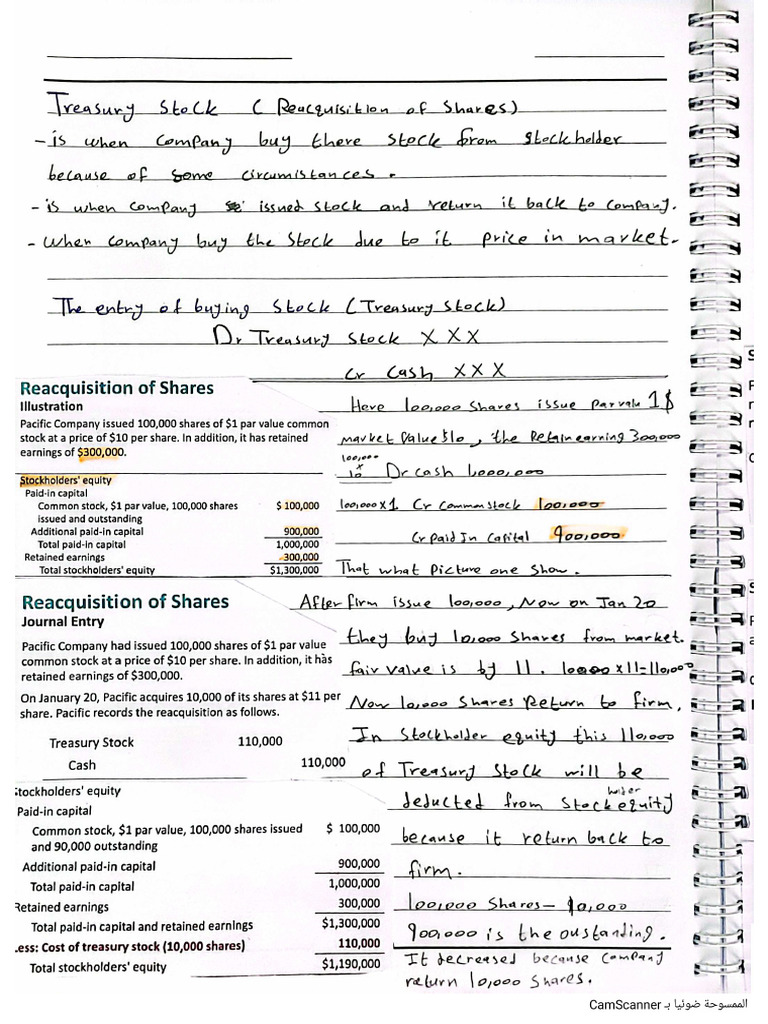 Treasury Stock ( Reacquisition of Shares)
- is when company buy there stock from stockholder
because of some circumistances.
- is when company issued stock and return it back to company.
- when company buy the stock due to it price in market.
The entry of buying stock (Treasury stock)
Dr Treasury stock XXX
Cr Cash XXX
Reacquisition of Shares
Illustration
Pacific Company issued 100,000 shares of $1 par value common
stock at a price of $10 per share. In addition, it has retained
earnings of $300,000.
Stockholders' equity
Paid-in capital
Common stock, $1 par value, 100,000 shares $ 100,000
issued and outstanding
Additional paid-in capital 900,000
Total paid-in capital 1,000,000
Retained earnings 300,000
Total stockholders' equity $1,300,000
Here 100,000 shares issue par valu 1$
market value $10, the Retain earning 300,000
100,000
x
10 Dr cash 1,000,000
100,000 x 1 Cr Common stock 100,000
Cr paid In Capital 900,000
That what picture one show.
Reacquisition of Shares
Journal Entry
Pacific Company had issued 100,000 shares of $1 par value
common stock at a price of $10 per share. In addition, it has
retained earnings of $300,000.
On January 20, Pacific acquires 10,000 of its shares at $11 per
share. Pacific records the reacquisition as follows.
Treasury Stock 110,000
Cash 110,000
After firm issue 100,000, Now on Jan 20
they buy 10,000 shares from market.
fair value is by 11. 10000 x 11 = 110,000
Now 10,000 shares Return to firm,
In Stockholder equity this 110,000
of Treasury Stock will be
deducted from Stock equity
because it return back to
firm.
100,000 Shares - 10,000
900,000 is the oustanding.
It decreased because company
return 10,000 shares.
tockholders' equity
Paid-in capital
Common stock, $1 par value, 100,000 shares issued $ 100,000
and 90,000 outstanding
Additional paid-in capital 900,000
Total paid-in capital 1,000,000
Retained earnings 300,000
Total paid-in capital and retained earnings $1,300,000
ess: Cost of treasury stock (10,000 shares) 110,000
Total stockholders' equity $1,190,000
الممسوحة ضوئيا بـ CamScanner